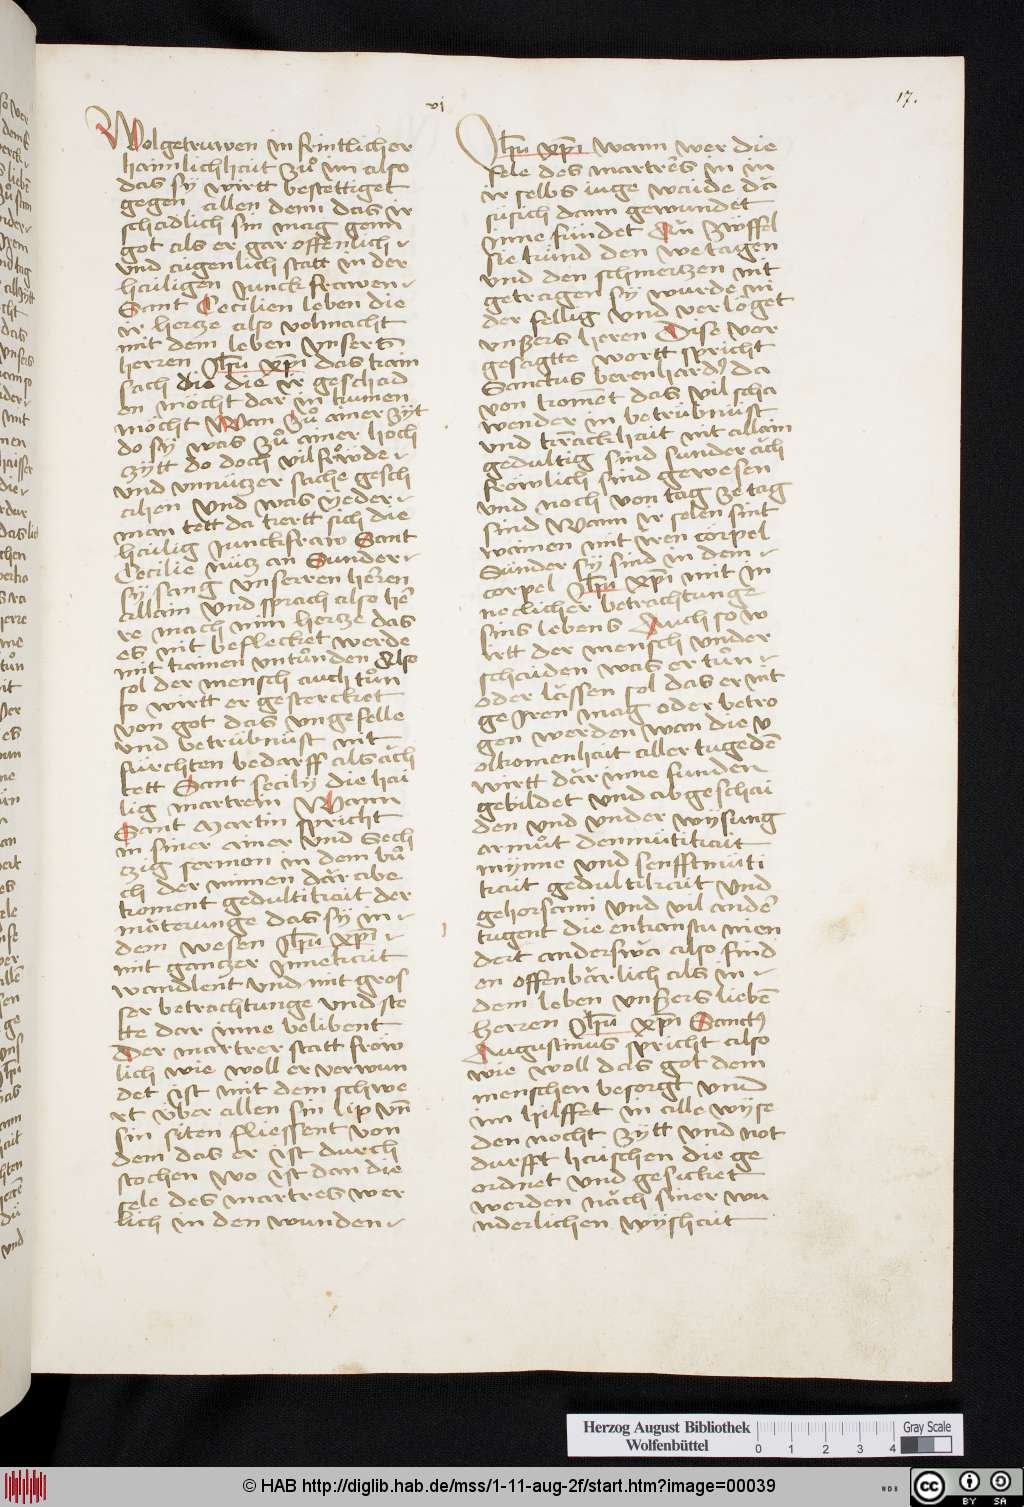 vj
17.
Wolgetruwen in frintlicher
haimlichhait zuͦ im also
das sy wirtt bestettiget
gegen allen denn das ir
schedlich sin mag gem
got als er gar offenlich
vnd aigenlich statt in der
hailigen junckfrawen
Sant Cecilien leben die
ir hertze also volmacht
mit dem leben vnsers
herren Jhu xpi das kain
sach die die ir geschad
en möcht dar in kumen
möcht Wan zuͦ ainer zyt
do sy was zuͦ ainer hoch
zytt do doch vil fröwde
vnd vnnutzer sache gesch
ahen vnd was yeder
man tett da kertt sich die
hailig junckfraw Sant
Cecilie nütz an Sunder
sy sang vnserren herren
allain vnd sprach also her
re mach min hertze das
es nit beflecket werde
mit kainen vntuͦnden Also
sol der mensch auch tuͦn
so wirtt er gestercket
von got das vngefelle
vnd betrübnüst nit
fürchten bedarff als ach
tett Sant secily die hai
lig martrerin Wann
Sant Martin spricht
in siner ainer vnd Sech
tzig sermon in dem buͦ
ch der minnen där abe
koment gedultikait der
materunge das sy in
dem wesen Jhu xpi
mit gantzer jnnekait
wandlent vnd mit gros
ser betrachtunge vnd ste
tte dar jnne belibent
Der martrer statt fröw
lich wie woll er verwun
det ist mit dem schwe
rt v̈ber allen sin lip vn̄
sin siten fliessent von
dem das er ist durch
stochen wo ist dan die
sele des martres wer
lich in den wunden
Jhu xpi wann wer die
sele des martrers in in
ir selbs inge waide da
süsich dann gewundet
jnne fündet Nun zwyffel
sie kund den wetagen
vnd den schmertzen nit
getragen sy wurde in
der fellig vnd verlöget
vnsers heren Dise vor
gesagtte wortt spricht
Sanctus berenhardus da
von koment das vil scha
wender in betrübnüst
vnd kranckhait nit allain
gedultig sind sunder ach
fröwlich sind gewesen
vnd noch von tag ze tag
sind Wann ir selen sint
wainen mit iren corpel
Sünder sy sind in dem
corpel Jhu xpi mit in
neclicher betrachtunge
sins lebens Auch so w
irtt der mensch vnder
schaiden was er tuͦn
oder lässen sol das er nit
ge jren mag oder betro
gen werden wan die v
olkomenhait aller tugeden̄
wirtt där jnne funden
gebildet vnd abgeschai
den vnd vnder wysung
armuͦt demmütikait
mynne vnd senfftmüti
kait gedultikait vnd
gehorsami vnd vil ander
tugent die enkanstu nien
dert anderswä also find
en offenbärlich als in
dem leben vnsers lieben̄
herren Jhu xpi Sanctus
Augustinus spricht also
wie woll das got dem
menschen besorgt vnd
im hilffet in alle wyse
den nocht zytt vnd not
durfft haischen die ge
ordnet vnd gesicket
werden näch siner wu
nderlichen wyshait
Herzog August Bibliothek
Wolfenbüttel
0 1 2 3 4
Gray Scale
© HAB http://diglib.hab.de/mss/1-11-aug-2f/start.htm?image=00039
WDB
cc BY SA